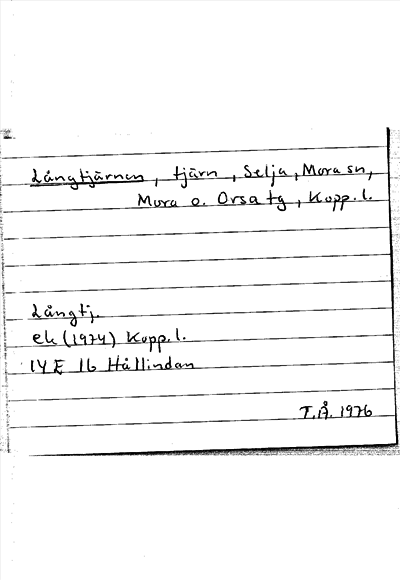 Långtjärnen, tjärn, Selja, Mora sn,
Mora o. Orsa tg, Kopp.l.
Långtj.
ek (1974) Kopp.l.
14E 1b Hållindan
T.Å. 1976